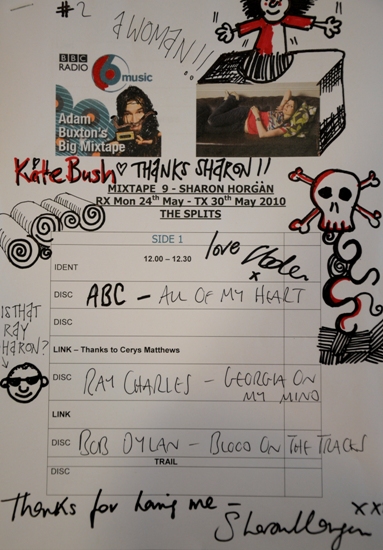 #2
A WOMAN!!!
BBC
RADIO
6 music
Adam
Buxton's
Big Mixtape
Kate Bush ♡ THANKS SHARON!!
MIXTAPE 9 - SHARON HORGAN
RX Mon 24th May - TX 30th May 2010
THE SPLITS
SIDE 1
12.00 – 12.30
love
x
IDENT
DISC ABC – ALL OF MY HEART
DISC
IS THAT
RAY
HARON?
LINK – Thanks to Cerys Matthews
DISC RAY CHARLES – GEORGIA ON
MY MIND
LINK
DISC BOB DYLAN – BLOOD ON THE TRACKS
TRAIL
DISC
Thanks for having me –
Sharon Horgan xx